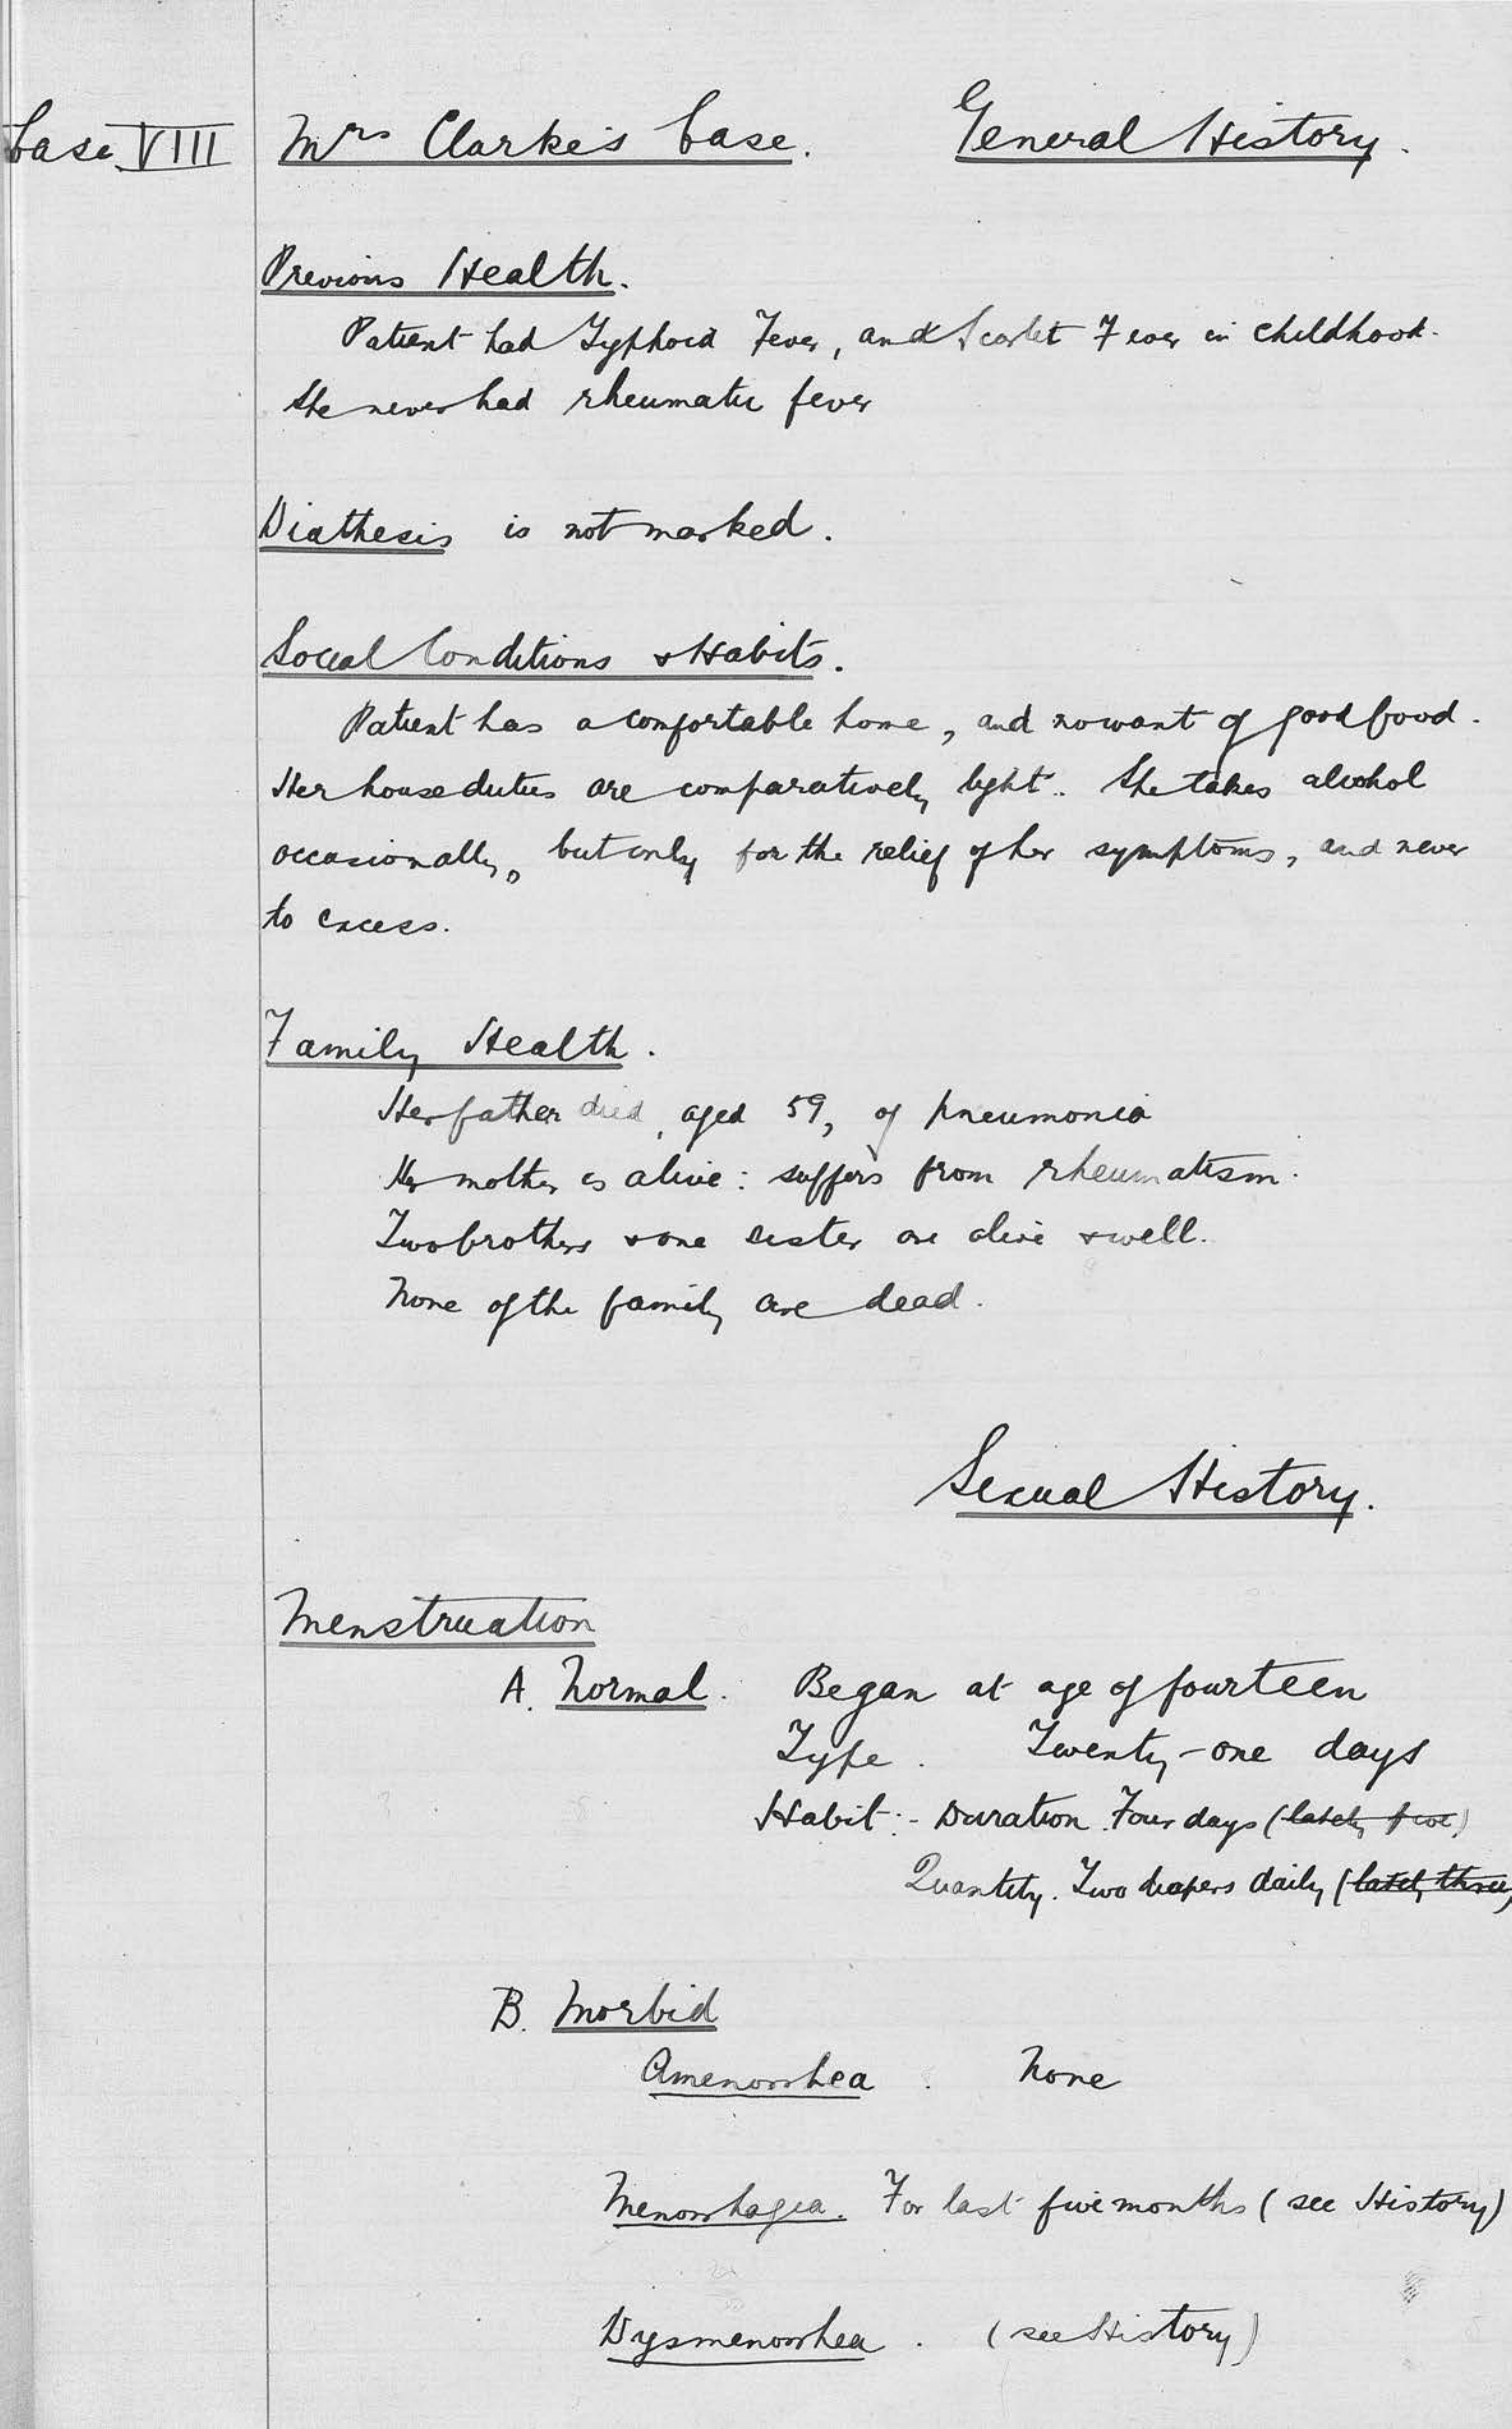 Case VIII Mrs Clarke's Case. General History.
Previous Health.
Patient had Typhoid Fever, and Scarlet Fever in childhood.
She never had rheumatic fever
Diathesis is not marked.
Social Conditions & Habits.
Patient has a comfortable home, and no want of good food.
Her house duties are comparatively light. She takes alcohol
occasionally, but only for the relief of her symptoms, and never
to excess.
Family Health.
Her father died, aged 59, of pneumonia
Her mother is alive: suffers from rheumatism.
Two brothers & one sister are alive & well.
None of the family are dead.
Sexual History.
Menstruation
A. Normal. Began at age of fourteen
Type. Twenty-one days
Habit:- Duration. Four days (lately five)
Quantity. Two diapers daily (lately three)
B. Morbid
Amenorrhea. None
Menorrhagia. For last five months (see History)
Dysmenorrhea. (see History)